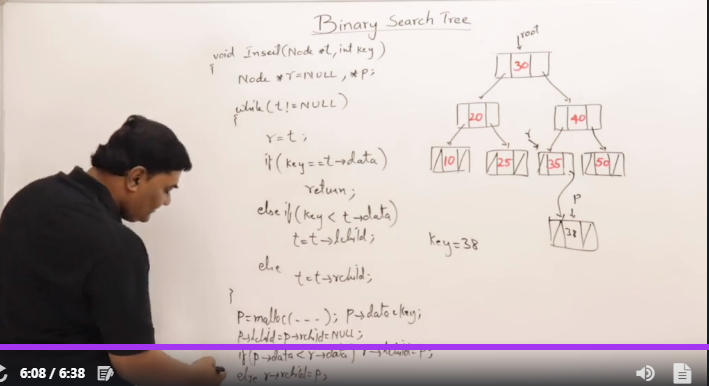 Binary Search Tree
void Insert(Node *t, int key)
{
Node *r=NULL, *p;
while(t!=NULL)
{
r=t;
if(key==t→data)
return;
else if(key < t→data)
t=t→lchild;
else
t=t→rchild;
}
P=malloc(---); p→data=key;
p→lchild=p→rchild=NULL;
if(p→data<r→data) r→lchild=p;
else r→rchild=p;
root
30
20
40
10
25
r
35
50
P
38
key=38
6:08 / 6:38